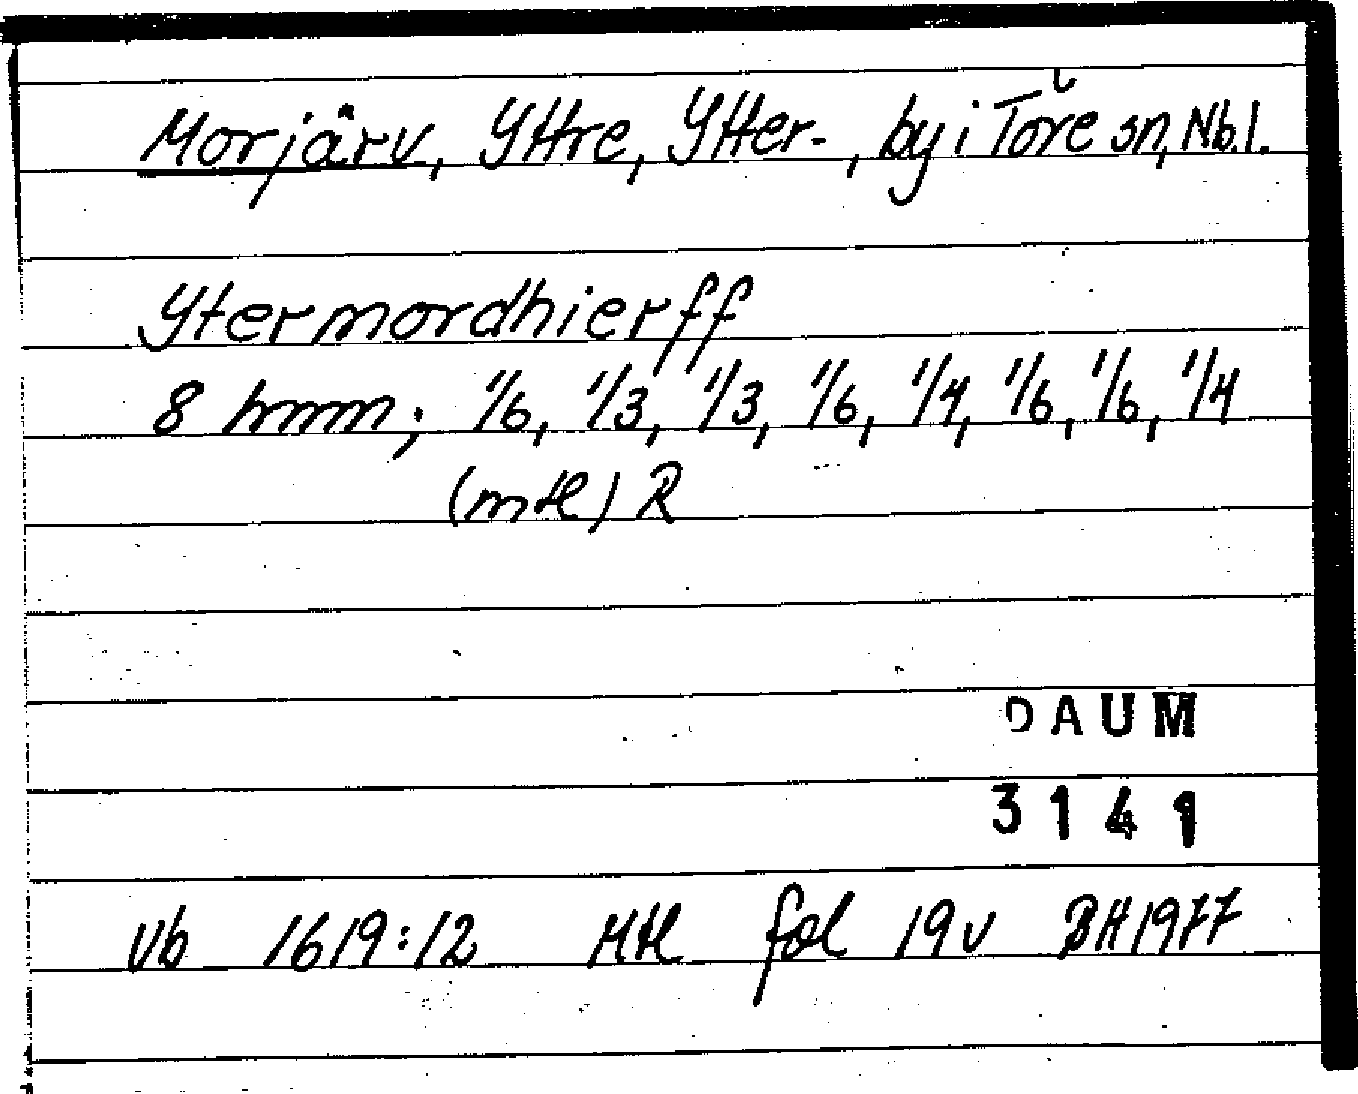 Morjärv, Yttre, Ytter-, by i Töre sn, Nb.l.
Ytermordhierff
8 hmm; 1/6, 1/3, 1/3, 1/6, 1/4, 1/6, 1/6, 1/4
(mtl) R
DAUM
3141
Vb 1619:12 Mtl fol 19v BH1977